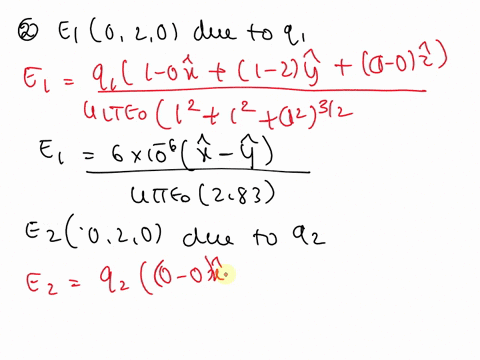 ② E₁(0,2,0) due to q₁
E₁ = q₁(1-0x̂ + (1-2)ŷ + (0-0)ẑ)
4πε₀(1² + 1² + 0²)^3/2
E₁ = 6×10⁻⁶(x̂ - ŷ)
4πε₀(2.83)
E₂(0,2,0) due to q₂
E₂ = q₂((0-0)x̂